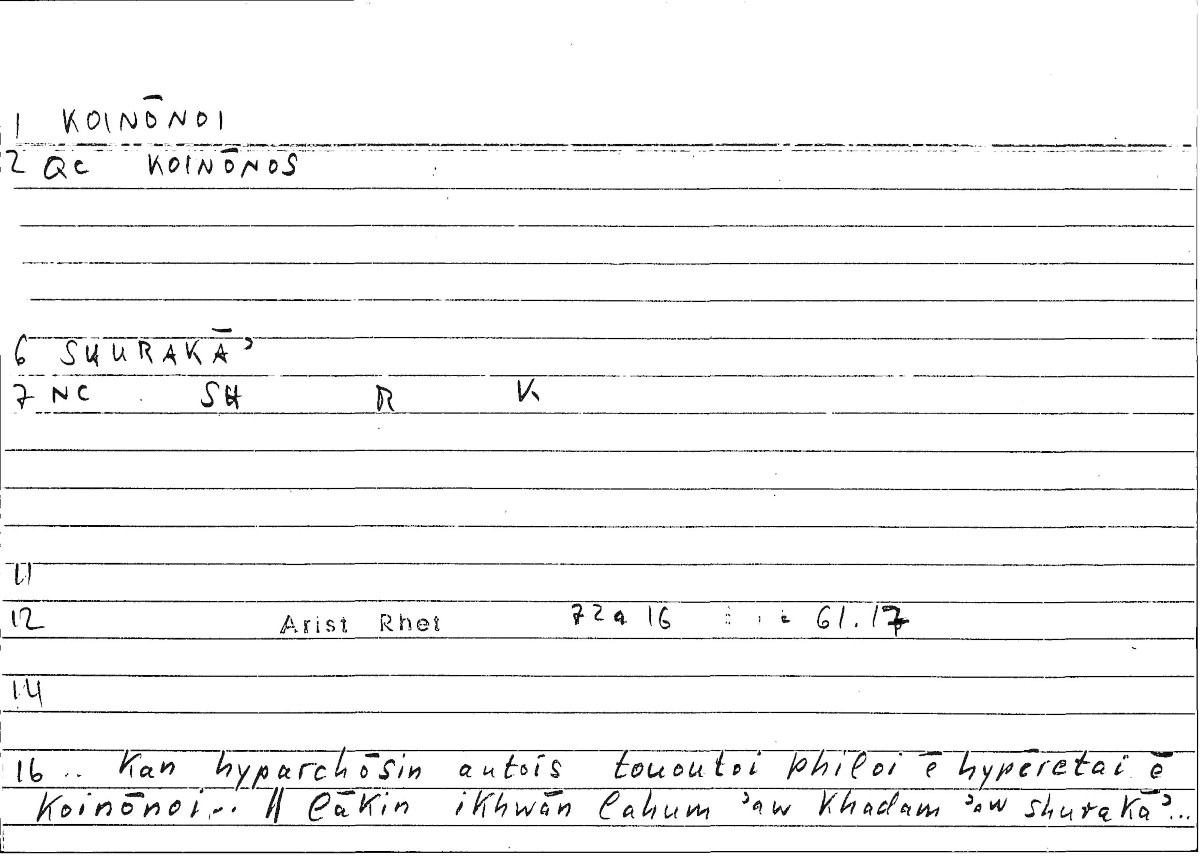 1 KOINŌNOI
2 QC KOINŌNOS
6 SHURAKĀʾ
7 NC SH R K
11
12 Arist Rhet 72a 16 61.17
14
16 .. Kan hyparchōsin autois tououtoi philoi ē hypēretai ē
Koinōnoi... || lākin ikhwān lahum ʾaw khadam ʾaw shurakāʾ...